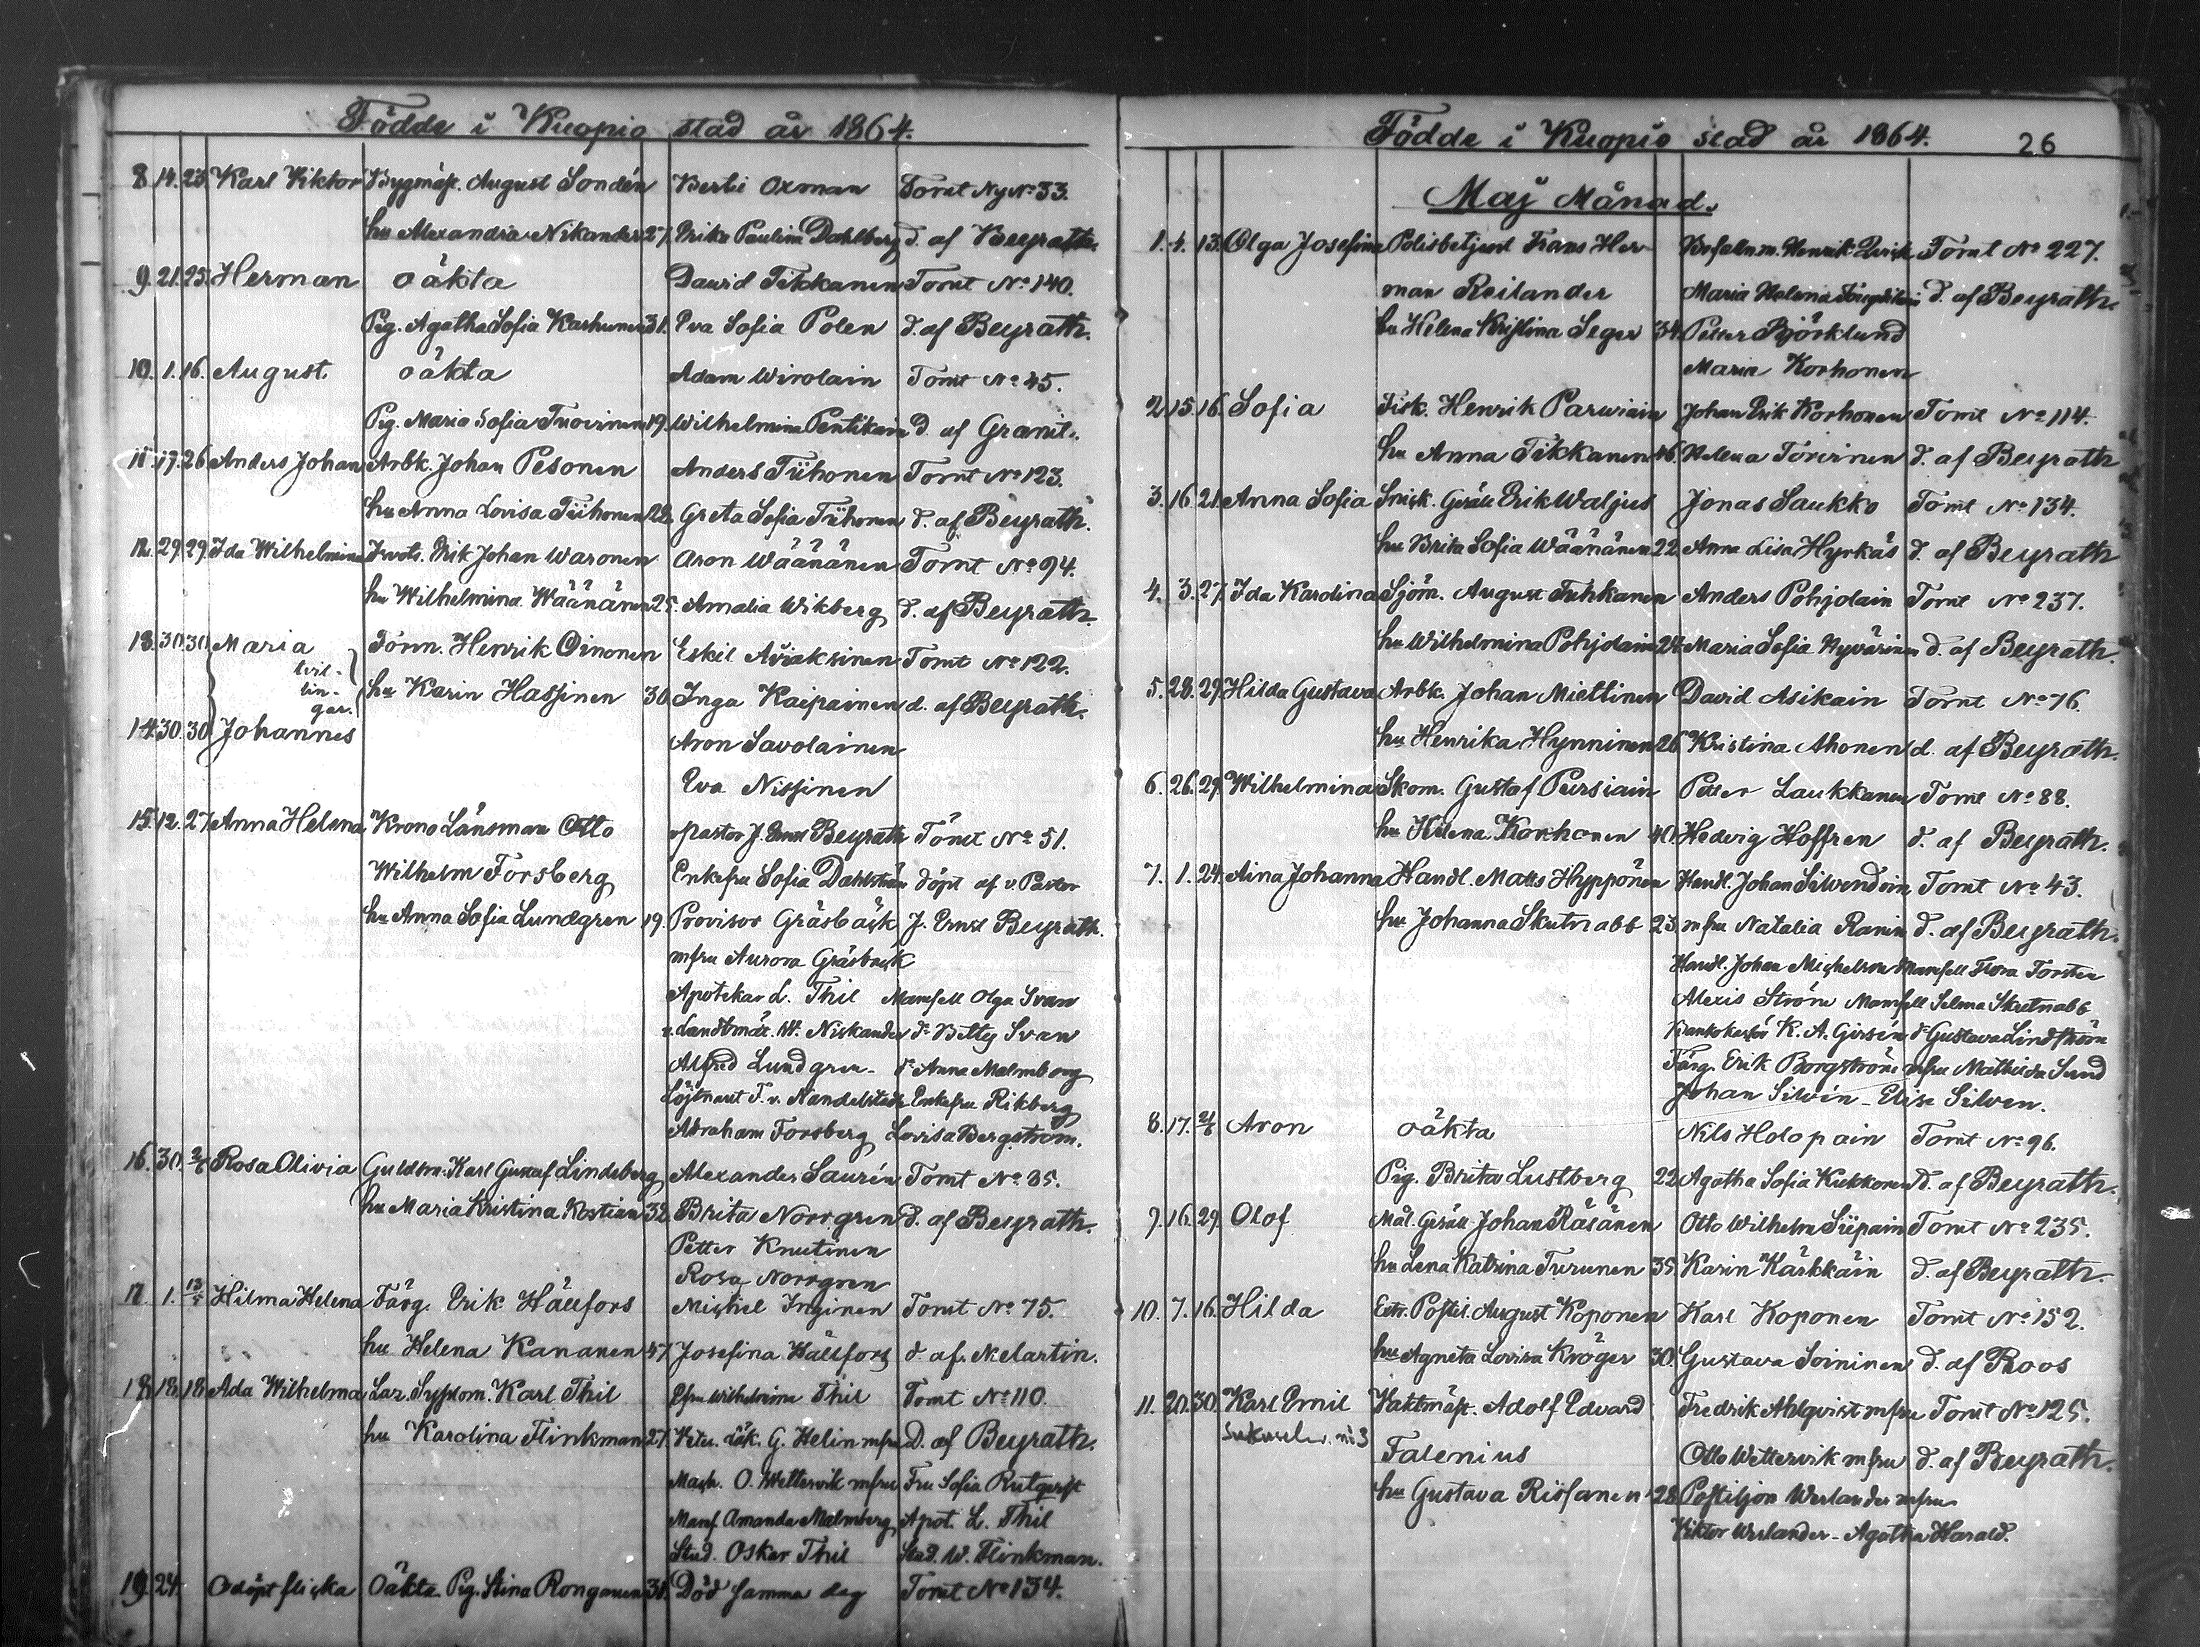 Födde i Kuopio stad år 1864.
8. 14. 23. Karl Viktor Byggmäst. August Sondén Berti Oxman Tomt Ny No 33.
hu Alexandra Nikander 27. Brita Paulina Dahlberg d. af Beyrath.
9. 21. 25. Herman oäkta David Tikkanen Tomt No 140.
Pig. Agatha Sofia Karhunen 31. Eva Sofia Polen d. af Beyrath.
10. 1. 16. August oäkta Adam Wirolain Tomt No 45.
Pig. Maria Sofia Tuovinen 19. Wilhelmina Pentikäin d. af Granit.
11. 17. 26 Anders Johan Arbk. Johan Pesonen Anders Tiihonen Tomt No 123.
hu Anna Lovisa Tiihonen 22. Greta Sofia Tiihonen d. af Beyrath.
12. 29. 29. Ida Wilhelmina Erik Johan Waronen Aron Wäänänen Tomt No 94.
hu Wilhelmina Wäänänen 25. Amalia Wikberg d. af Beyrath.
13. 30. 30 Maria Förm. Henrik Oinonen Eskil Tomt No 122.
tvil-
lin-
gar.
hu Karin Hassinen 30. Inga Kaipainen d. af Beyrath.
14. 30. 30 Johannes Aron Savolainen
Eva Nissinen
15. 12. 27 Anna Helena Krono Länsman Otto v pastor J. Ernst Beyrath Tomt No 51.
Wilhelm Forsberg Enkefru Sofia Dahlström döpt af v. Pastor
hu Anna Sofia Lundgren 19. Provisor Gräsbäck J. Ernst Beyrath.
mfru Aurora Gräsbäck
Apotekar L. Thil Mamsell Olga Svan
v. Landtmät. W. Niskander d:o Betty Svan
Alfred Lundgren - d:o Anna Malmborg
Löjtnant F. v. Nandelstadt Enkefru Rikberg
Abraham Forsberg Lovisa Bergström.
16. 30. 2/5 Rosa Olivia Guldsm. Karl Gustaf Lindeberg Alexander Saurén Tomt No 35.
hu Maria Kristina Kostian 32. Brita Norrgren d. af Beyrath.
Petter Knutinen
Rosa Norrgren
17. 1. 13/5 Hilma Helena Färg. Erik Hällfors Mickel Inginen Tomt No 75.
hu Helena Kananen 47. Josefina Hällfors d. af Melartin.
18. 18. 18. Ada Wilhelma Laz. Sysslom. Karl Thil Efru Wilhelmina Thil Tomt No 110.
hu Karolina Flinkman 27. Veter. Läk. G. Helin mfru D. af Beyrath.
Mask. O. Wettervik mfru Fru Sofia Rutqvist
Mams Amanda Malmberg Apot. L. Thil
Stud. Oskar Thil Stud. W. Flinkman.
19. 24. Odöpt flicka Oäkta Pig. Stina Ronganen 31. Död samma dag Tomt No 134.
Födde i Kuopio stad år 1864. 26
Maj Månad.
1. 4. 13. Olga Josefina Polisbetjent Frans Her- Tomt No 227.
man Reilander Maria Helena d. af Beyrath.
hu Helena Kristina Seger 34. Petter Björklund
Maria Korhonen
2. 15. 16. Sofia Fisk. Henrik Parwiain Johan Erik Korhonen Tomt No 114.
hu Anna Tikkanen 46. Helena Toivinen d. af Beyrath
3. 16. 21. Anna Sofia Snick. Gesäll Erik Waljus Jonas Saukko Tomt No 134.
hu Brita Sofia Wäänänen 22. Anna Lisa Hyrkäs d. af Beyrath
4. 3. 27. Ida Karolina Sjöm. August Tuhkanen Anders Pohjolain Tomt No 237.
hu Wilhelmina Pohjolain 24. Maria Sofia Hyvärinen d. af Beyrath.
5. 28. 29. Hilda Gustava Arbk. Johan Miettinen David Asikain Tomt No 76.
hu Henrika Hynninen 26. Kristina Ahonen d. af Beyrath.
6. 26. 29. Wilhelmina Skom. Gustaf Pursiain Petter Laukkanen Tomt No 88.
hu Helena Korhonen 40. Hedvig Hoffren d. af Beyrath.
7. 1. 24. Aina Johanna Handl. Matts Hyppönen Handl. Johan Silvendoin Tomt No 43.
hu Johanna Skutnabb 23. mfru Natalia Ranin d. af Beyrath.
Handl. Johan Michelson Mamsell Flora Forstén
Alexis Ström Mamsell Selma Skutnabb
K. A. Girsén d:o Gustava Lindström
Färg. Erik Borgström mfru Mathilda Sund
Johan Silvén - Elise Silven.
8. 17. 2/6 Aron oäkta Nils Holopain Tomt No 96.
Pig. Brita Lustberg 22. Agatha Sofia Kukkonen d. af Beyrath.
9. 16. 29. Olof Mål. Gesäll Johan Räsänen Otto Wilhelm Siipain Tomt No 235.
hu Lena Katrina Turunen 35. Karin Kärkkäin d. af Beyrath.
10. 7. 16. Hilda Extr. Postil. August Koponen Karl Koponen Tomt No 152.
hu Agneta Lovisa Kröger 30. Gustava Soininen d. af Roos
11. 20. 30. Karl Emil Vaktmäst. Adolf Edvard Fredrik Ahlqvist mfru Tomt No 125.
Falenius Otto Wettervik mfru d. af Beyrath.
hu Gustava Riissanen 28. Postiljon Werlander mfru
Viktor Werlander - Agatha Harald.